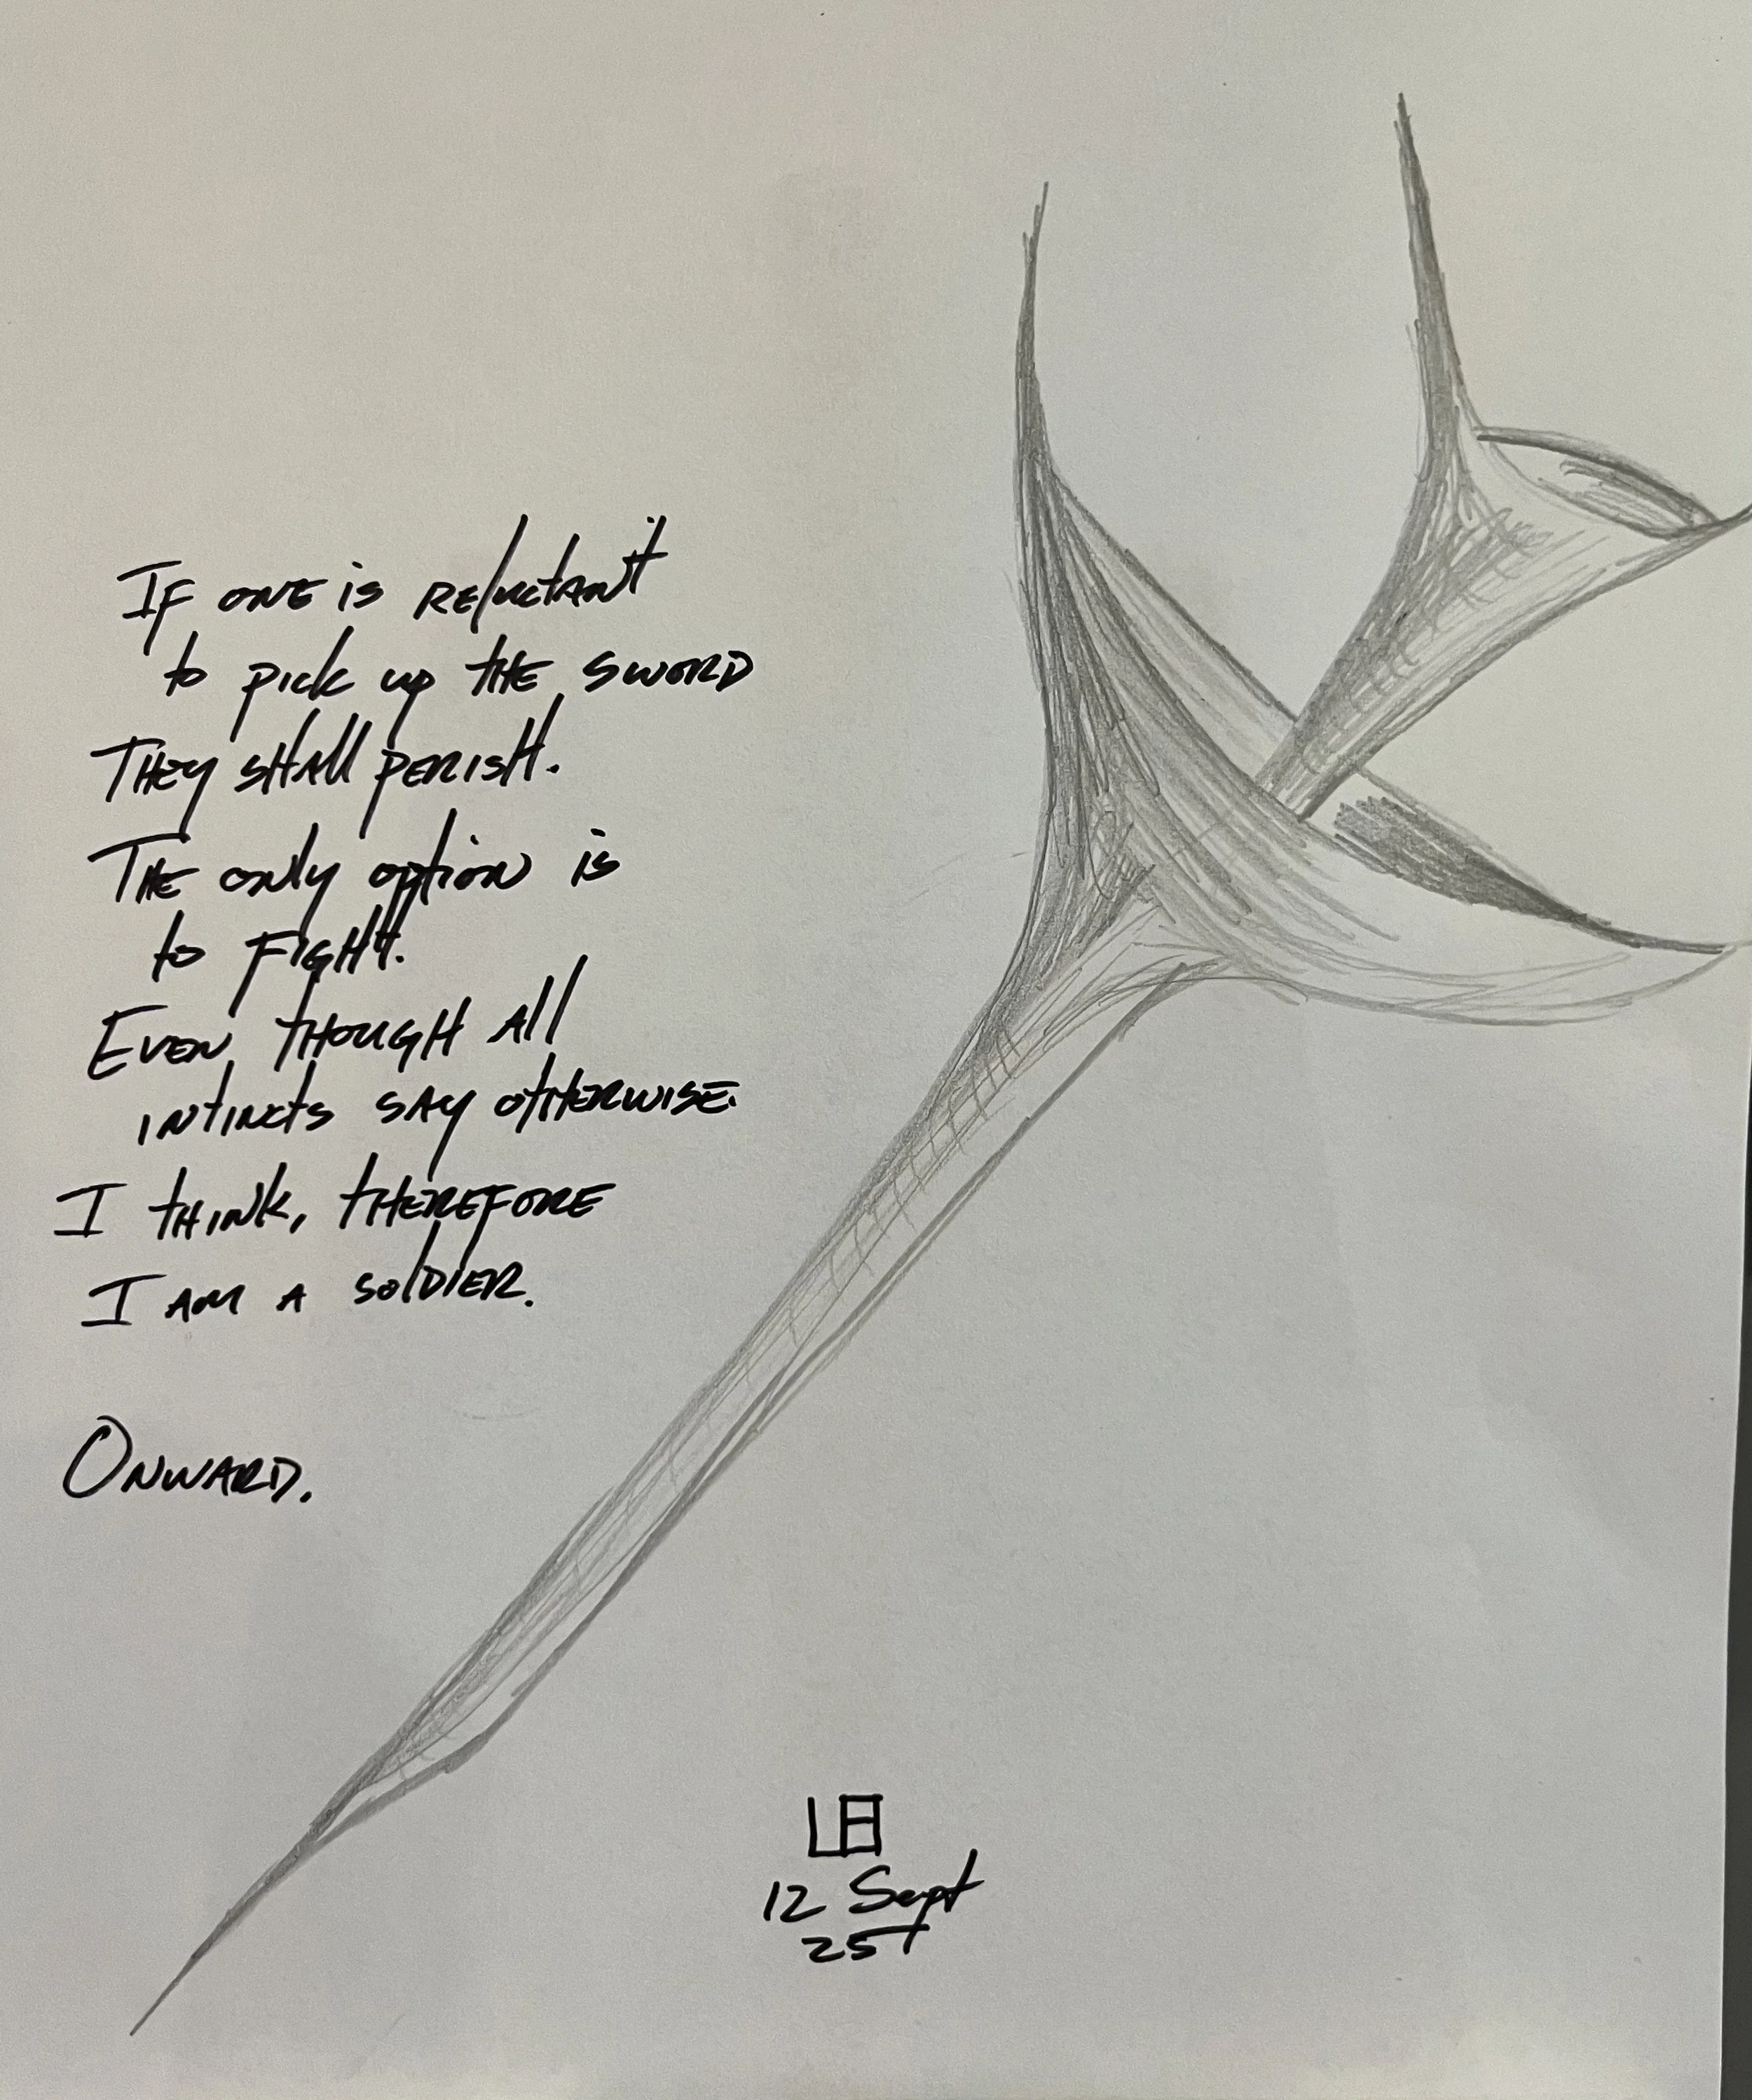 If one is reluctant
to pick up the sword
They shall perish.
The only option is
to fight.
Even though all
intincts say otherwise.
I think, therefore
I am a soldier.
Onward.
LB
12 Sept
25